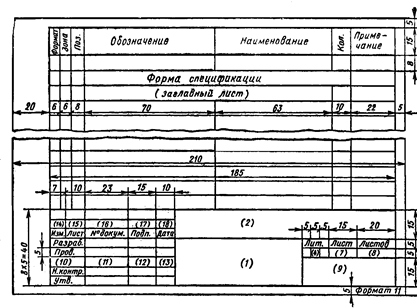 Формат
Зона
Поз.
Обозначение
Наименование
Кол.
Приме-
чание
5
15
8
Форма спецификации
(заглавный лист)
20 6 6 8 70 63 10 22 5
210
185
7 10 23 15 10
(14) (15) (16) (17) (18)
(2)
5 5 5 15 20
15
Изм Лист № докум. Подп. Дата
Лит. Лист Листов
5
Разраб.
(4) (7) (8)
5
Пров.
8×5=40
5
(10) (11) (12) (13)
(1)
(9)
15
Н.контр.
Утв.
5
Формат 11